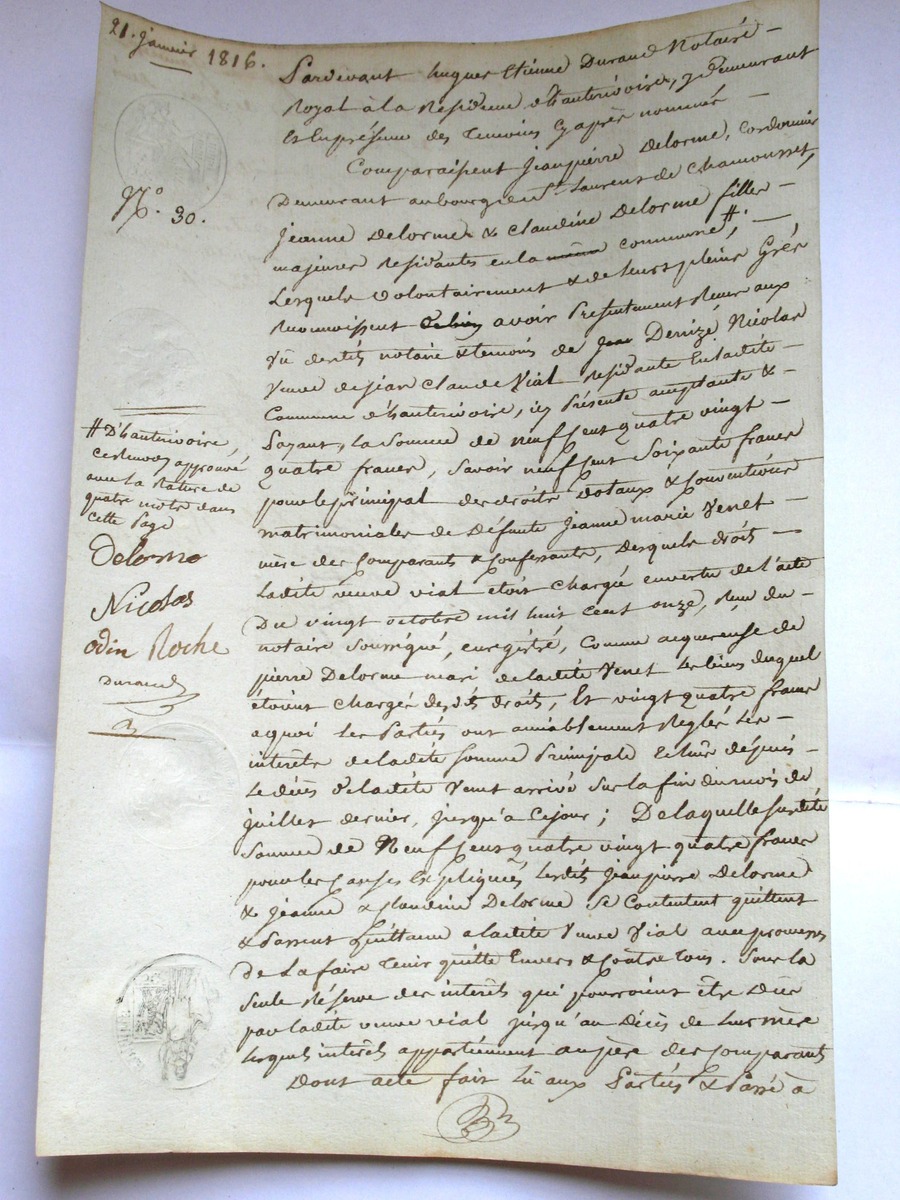 21. Janvier 1816.
N.º 30.
Pardevant hugues Etienne Durand Notaire
Royal à la Résidence d'hauterivoire, y demeurant
Et En présence des temoins cy après nommés
Comparaissent Jeanpierre Delorme, Cordonnier
Demeurant au bourg de St. Laurent de Chamousset,
Jeanne Delorme & Claudine Delorme filles
majeures Residantes en la même commune #,
Lesquels volontairement & de leurs pleins Grés
Reconnoissent avoir Présentement Reçu aux
vû desdits notaire & temoins de Jea Denizé Nicolas
veuve de jean Claude Vial Residante En ladite
Commune d'hauterivoire, icy Présente acceptante &
Payant, la Somme de neuf Cent quatre vingt
quatre francs, Savoir neuf Cent Soixante francs
pour le principal des droits dotaux & Conventions
matrimoniales de Défunte Jeanne marie Venet
mère des Comparants & Confessants, desquels droits
Ladite veuve vial étoit chargée en vertu de l'acte
Du vingt octobre mil huit Cent onze, Reçu du
notaire Soussigné, enregistré, Comme acquereuse de
pierre Delorme mari de ladite Venet les biens duquel
étoient chargés desdits droits, Et vingt quatre francs
a quoi les Parties ont amiablement Reglé les
interêts de ladite Somme Principale Echus depuis
Le décès de ladite Venet arrivé Sur la fin du mois de
juillet dernier, jusqu'à Cejour ; De laquelle Susdite
Somme de Neuf Cent quatre vingt quatre francs
pour les Causes Expliquées lesdits Jeanpierre Delorme
& Jeanne & Claudine Delorme Se Contentent quittent
& Passent Quittance a ladite Veuve Vial avec promesses
De La faire tenir quitte Envers & Contre tous. Sous la
Seule Réserve des interêts qui pourroient être Dûs
par ladite veuve vial jusqu'au Décès de leur mère
lesquels interêts appartiennent au père des Comparants
Dont acte fait Lû aux Parties & Passé à
# D'hauterivoire,
ce renvoy approuvé
avec la Rature de
quatre mots dans
cette Page
Delorme
Nicolas
odin Roche
Durand